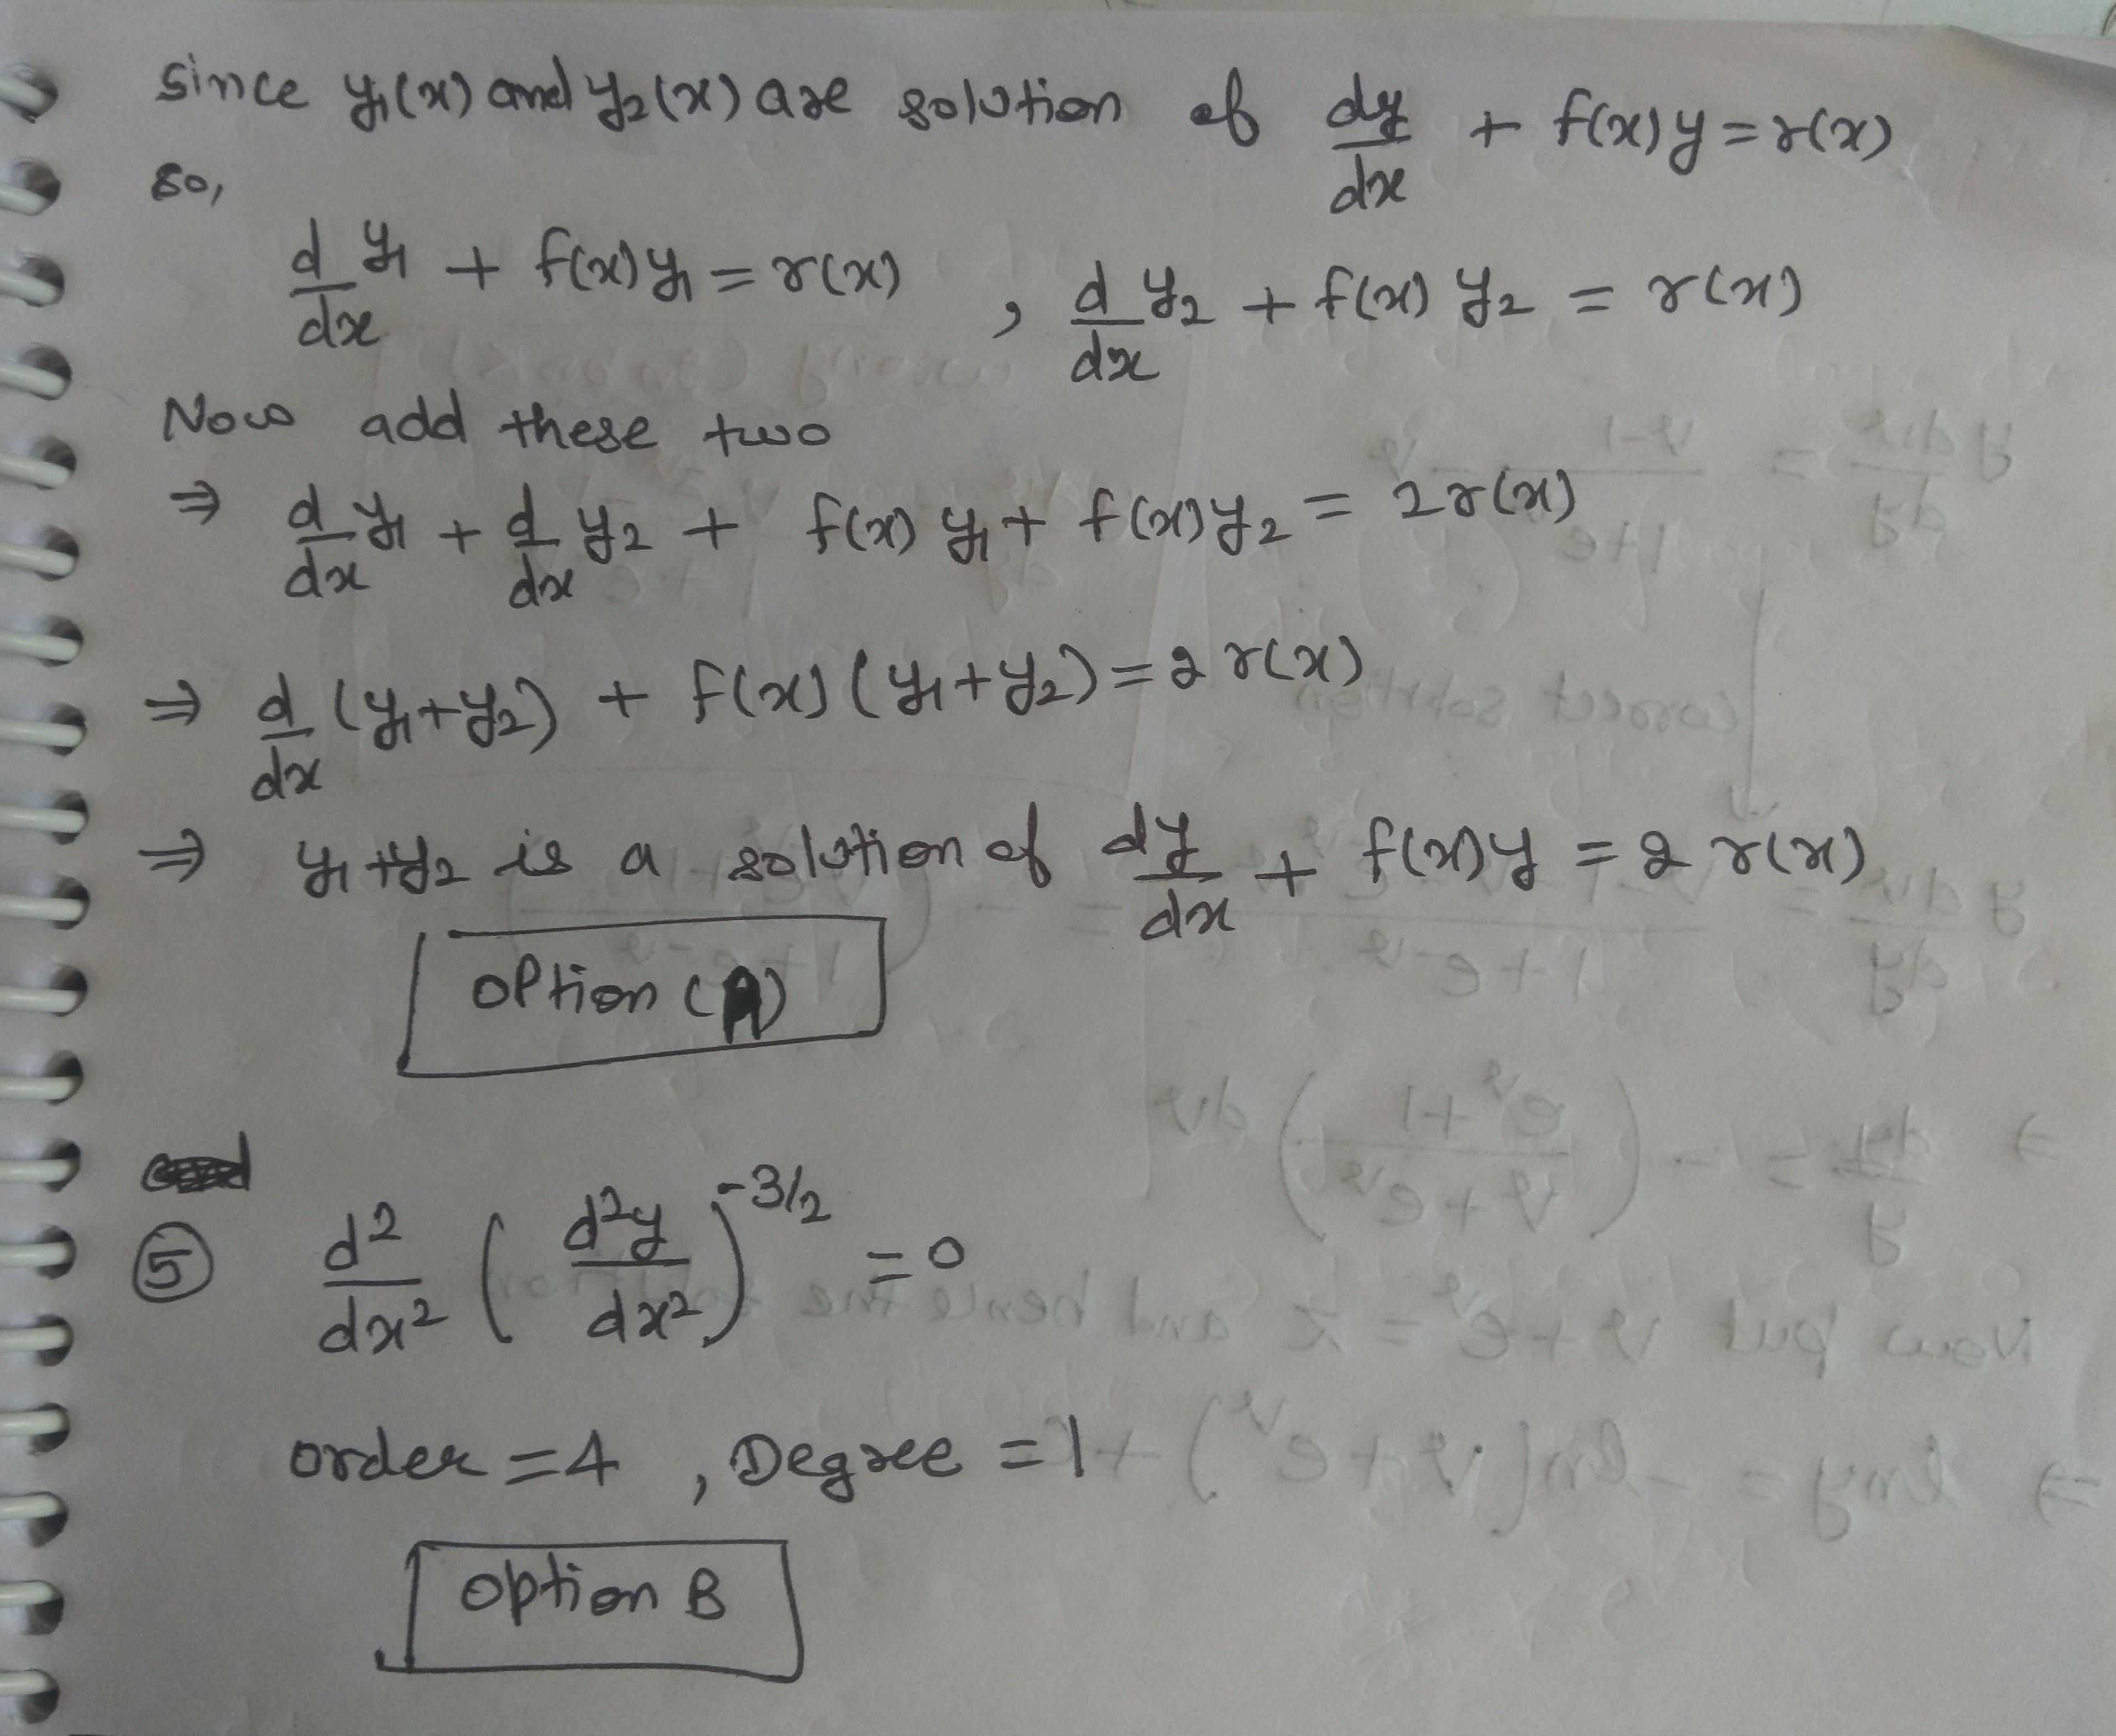 Since y₁(x) and y₂(x) are solution of dy/dx + f(x)y = r(x)
so,
d/dx y₁ + f(x)y₁ = r(x) , d/dx y₂ + f(x) y₂ = r(x)
Now add these two
⇒ d/dx y₁ + d/dx y₂ + f(x) y₁ + f(x)y₂ = 2r(x)
⇒ d/dx (y₁+y₂) + f(x) (y₁+y₂) = 2 r(x)
⇒ y₁+y₂ is a solution of dy/dx + f(x)y = 2 r(x)
option (A)
⑤ d²/dx² (d²y/dx²)^(-3/2) = 0
order = 4 , Degree = 1
option B